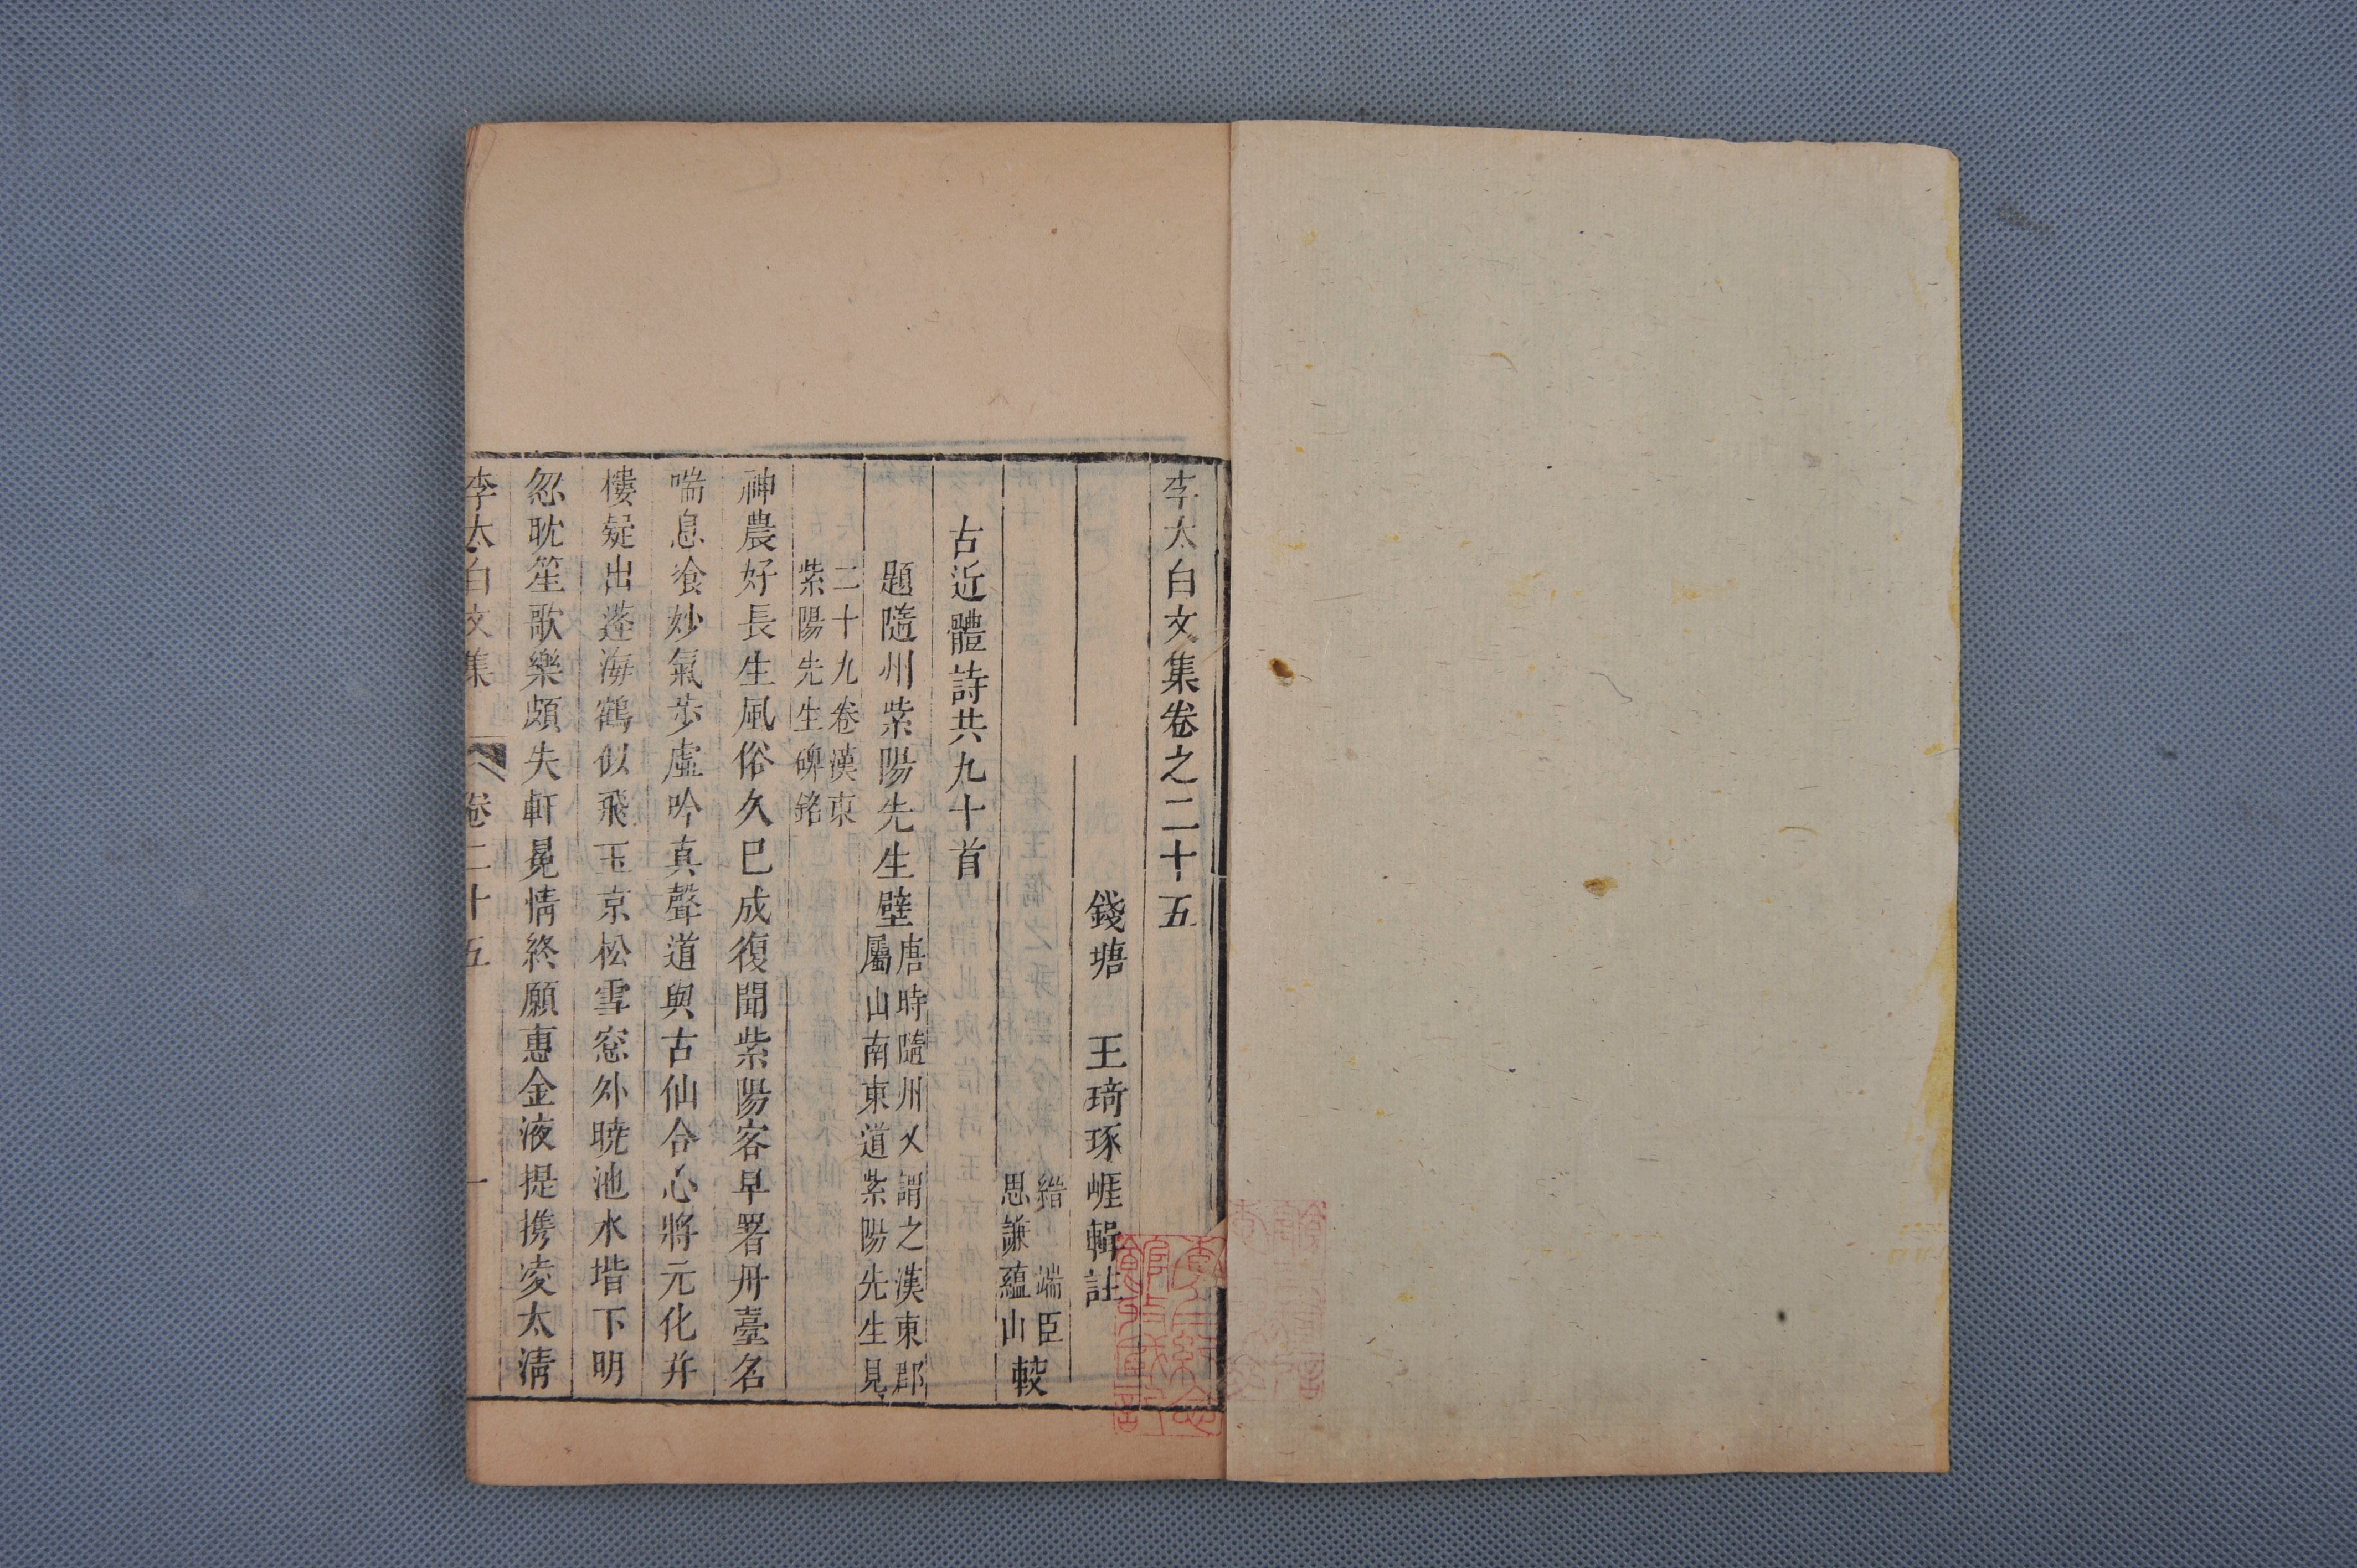 李太白文集卷之二十五
錢塘 王琦琢崕輯註
緒 端臣
思謙蘊山 較
古近體詩共九十首
題隨州紫陽先生壁 唐時隨州乂謂之漢東郡
屬山南東道紫陽先生見
二十九卷漢東
紫陽先生碑銘
神農好長生風俗久已成復聞紫陽客早署丹臺名
喘息飡妙氣步虛吟真聲道與古仙合心將元化并
樓疑出蓬海鶴似飛玉京松雪窓外曉池水堦下明
忽耽笙歌樂頗失軒冕情終願惠金液提携凌太清
李太白文集 卷二十五 一